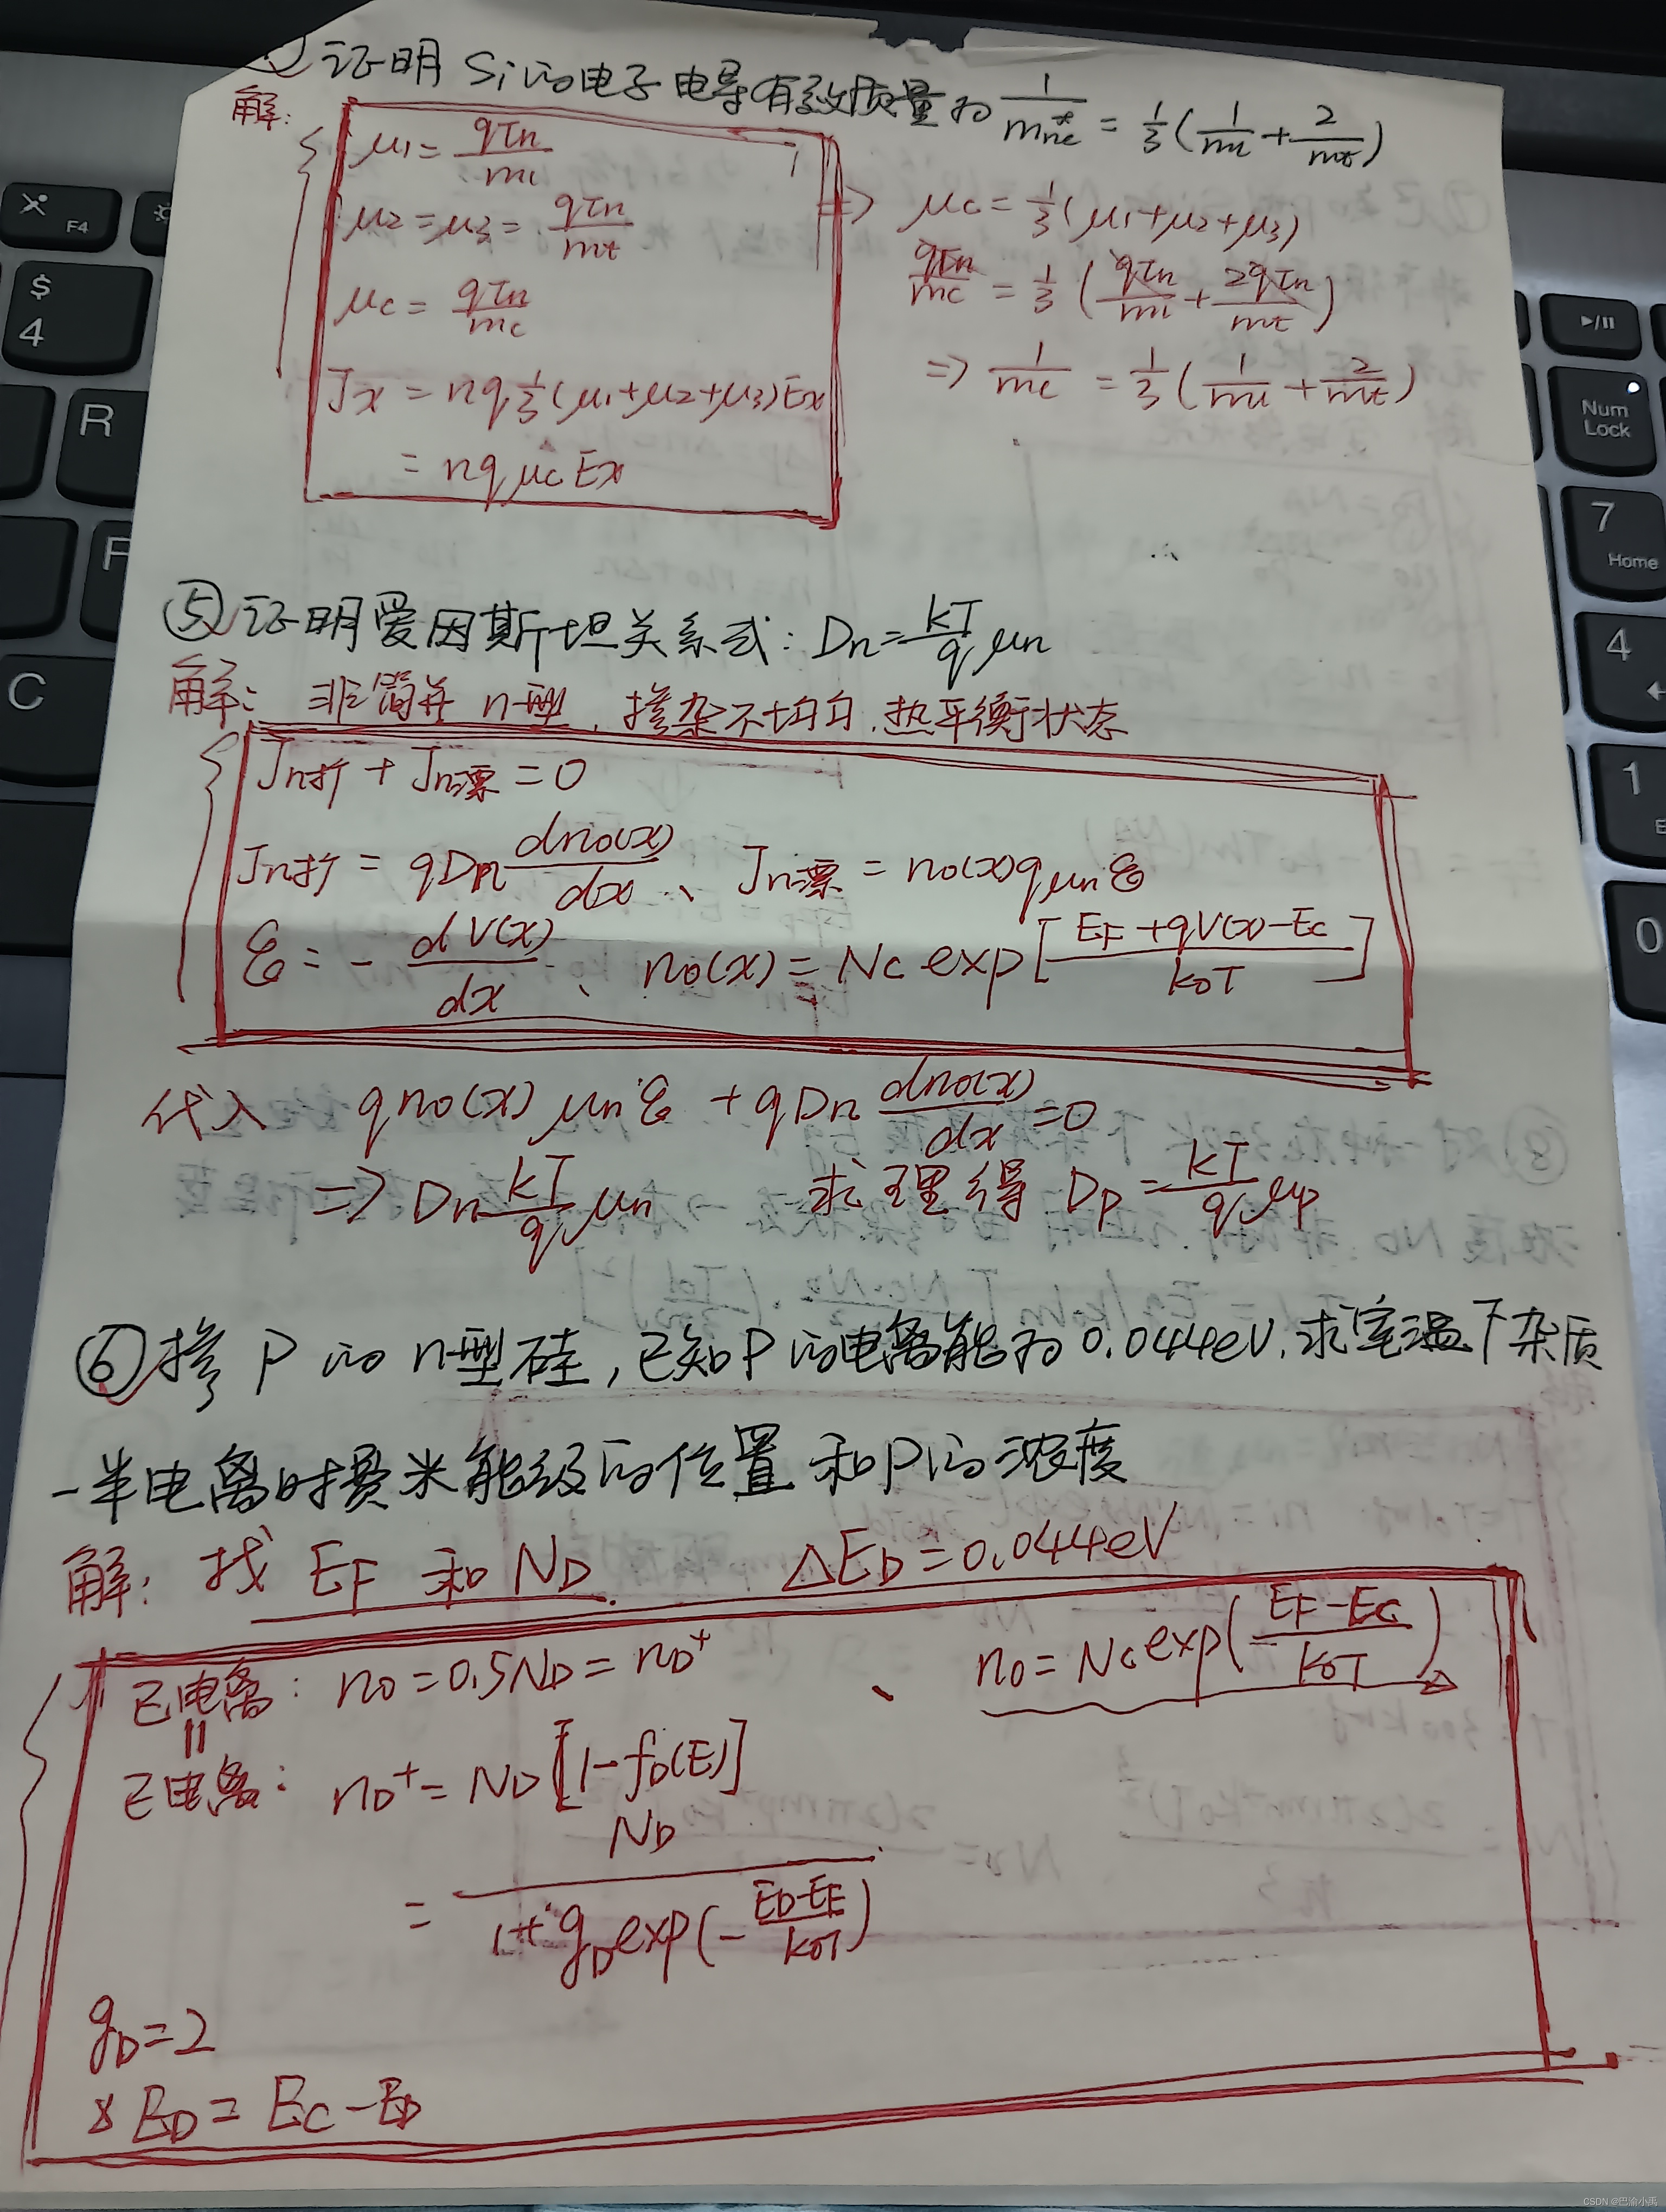 证明Si的电子电导有效质量为 1/m*nc = 1/3(1/ml + 2/mt)
解:
μ1 = qτn/ml
μ2 = μ3 = qτn/mt
μc = qτn/mc
Jx = nq 1/3(μ1+μ2+μ3)Ex
= nqμcEx
=> μc = 1/3(μ1+μ2+μ3)
qτn/mc = 1/3(qτn/ml + 2qτn/mt)
=> 1/mc = 1/3(1/ml + 2/mt)
⑤证明爱因斯坦关系式: Dn = kT/q μn
解: 非简并n型, 掺杂不均匀.热平衡状态
Jn扩 + Jn漂 = 0
Jn扩 = qDn dn0(x)/dx 、 Jn漂 = n0(x)qμnℰ
ℰ = - dV(x)/dx 、 n0(x) = Nc exp[(EF+qV(x)-Ec)/k0T]
代入 qn0(x)μnℰ + qDn dn0(x)/dx = 0
=> Dn kT/q μn 求理得 Dp = kT/q μp
⑥掺P的n型硅,已知P的电离能为0.044eV.求室温下杂质
一半电离时费米能级的位置和P的浓度
解: 找 EF 和 ND. ΔED = 0.044eV
已电离: n0 = 0.5ND = nD+ 、 n0 = Nc exp(EF-EC/k0T)
已电离: nD+ = ND[1-fD(E)]
= ND/(1+gD exp(-(ED-EF)/k0T))
gD = 2
ED = EC - ED
F4
$
4
R
F
C
Num
Lock
7
Home
4
1
0
CSDN @巴渝小禹